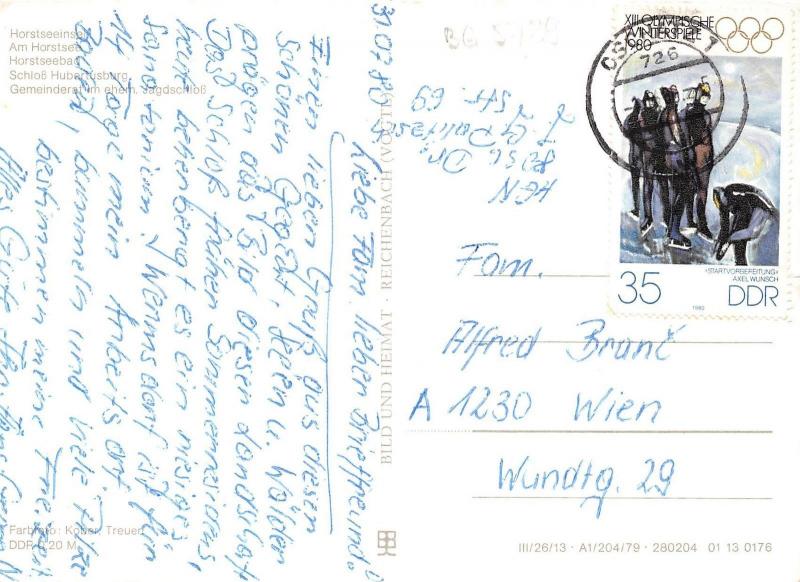 Horstseeinsel
Am Horstsee
Horstseebad
Schloß Hubertusburg,
Gemeinderat im ehem. Jagdschloß
31.07.80
Liebe Fam. lieber Brieffreund!
Einen lieben Gruß aus dieser
schönen Gegend, Seen u. Wälder
prägen das Bild dieser Landschaft
Das Schloß früher Sommerresidenz,
heute beherbergt es ein riesiges
Sanatorium. Wermsdorf ist für
14 Tage mein Arbeitsort.
Baden, bummeln und viele Pilze
bestimmen meine Freizeit
Alles Gute
Farbfoto: Kober, Treuen
DDR 0,20 M
BILD UND HEIMAT · REICHENBACH (VOGTL)
XIII. OLYMPISCHE
WINTERSPIELE
1980
726
»STARTVORBEREITUNG«
AXEL WUNSCH
1980
35 DDR
Fam.
Alfred Branč
A 1230 Wien
Wundtg. 29
III/26/13 · A1/204/79 · 280204 01 13 0176